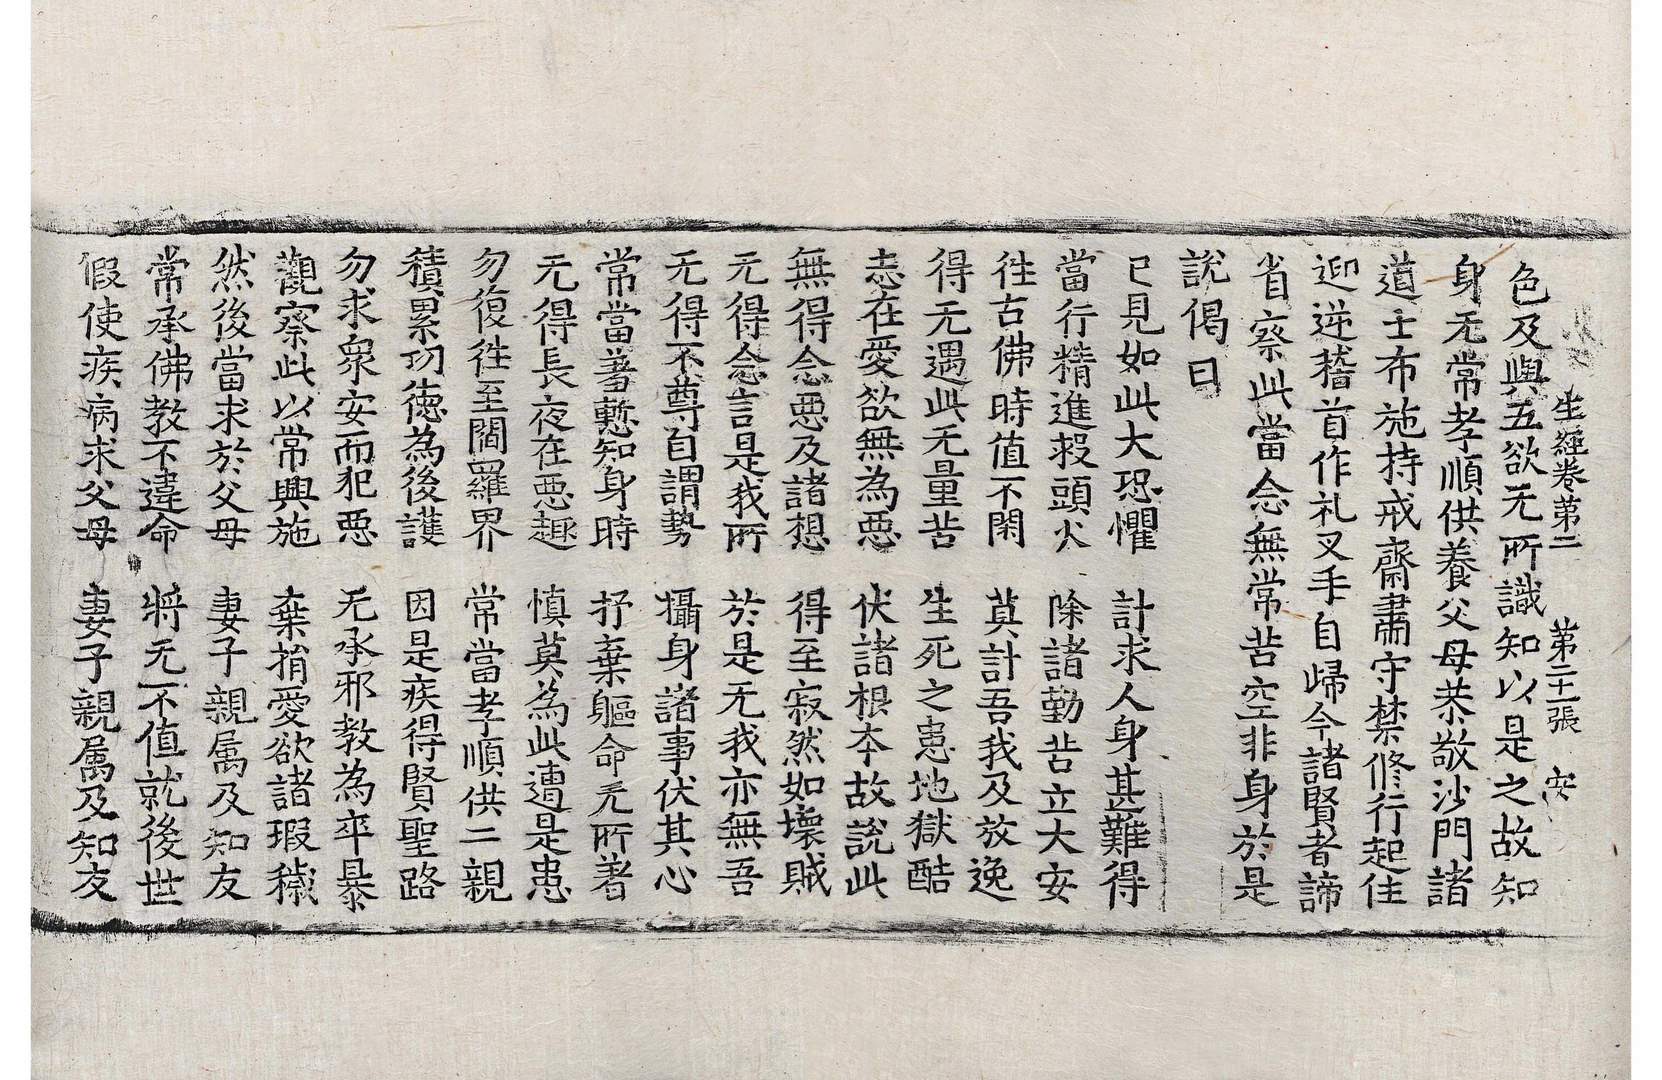 生經卷第二 第二十一張 安
色及與五欲无所識知以是之故知
身无常孝順供養父母恭敬沙門諸
道士布施持戒齋肅守禁修行起住
迎逆稽首作礼叉手自歸今諸賢者諦
省察此當念無常苦空非身於是
說偈曰
已見如此大恐懼 計求人身甚難得
當行精進救頭火 除諸勤苦立大安
往古佛時值不閑 莫計吾我及放逸
得无遇此无量苦 生死之患地獄酷
志在愛欲無為惡 伏諸根本故說此
無得念惡及諸想 得至寂然如壞賊
无得念言是我所 於是无我亦無吾
无得不尊自謂勢 攝身諸事伏其心
常當著慙知身時 抒棄軀命无所著
无得長夜在惡趣 慎莫為此遭是患
勿復往至閻羅界 常當孝順供二親
積累功德為後護 因是疾得賢聖路
勿求衆安而犯惡 无承邪教為卒暴
觀察此以常興施 棄捐愛欲諸瑕穢
然後當求於父母 妻子親属及知友
常承佛教不違命 將无不值就後世
假使疾病求父母 妻子親属及知友